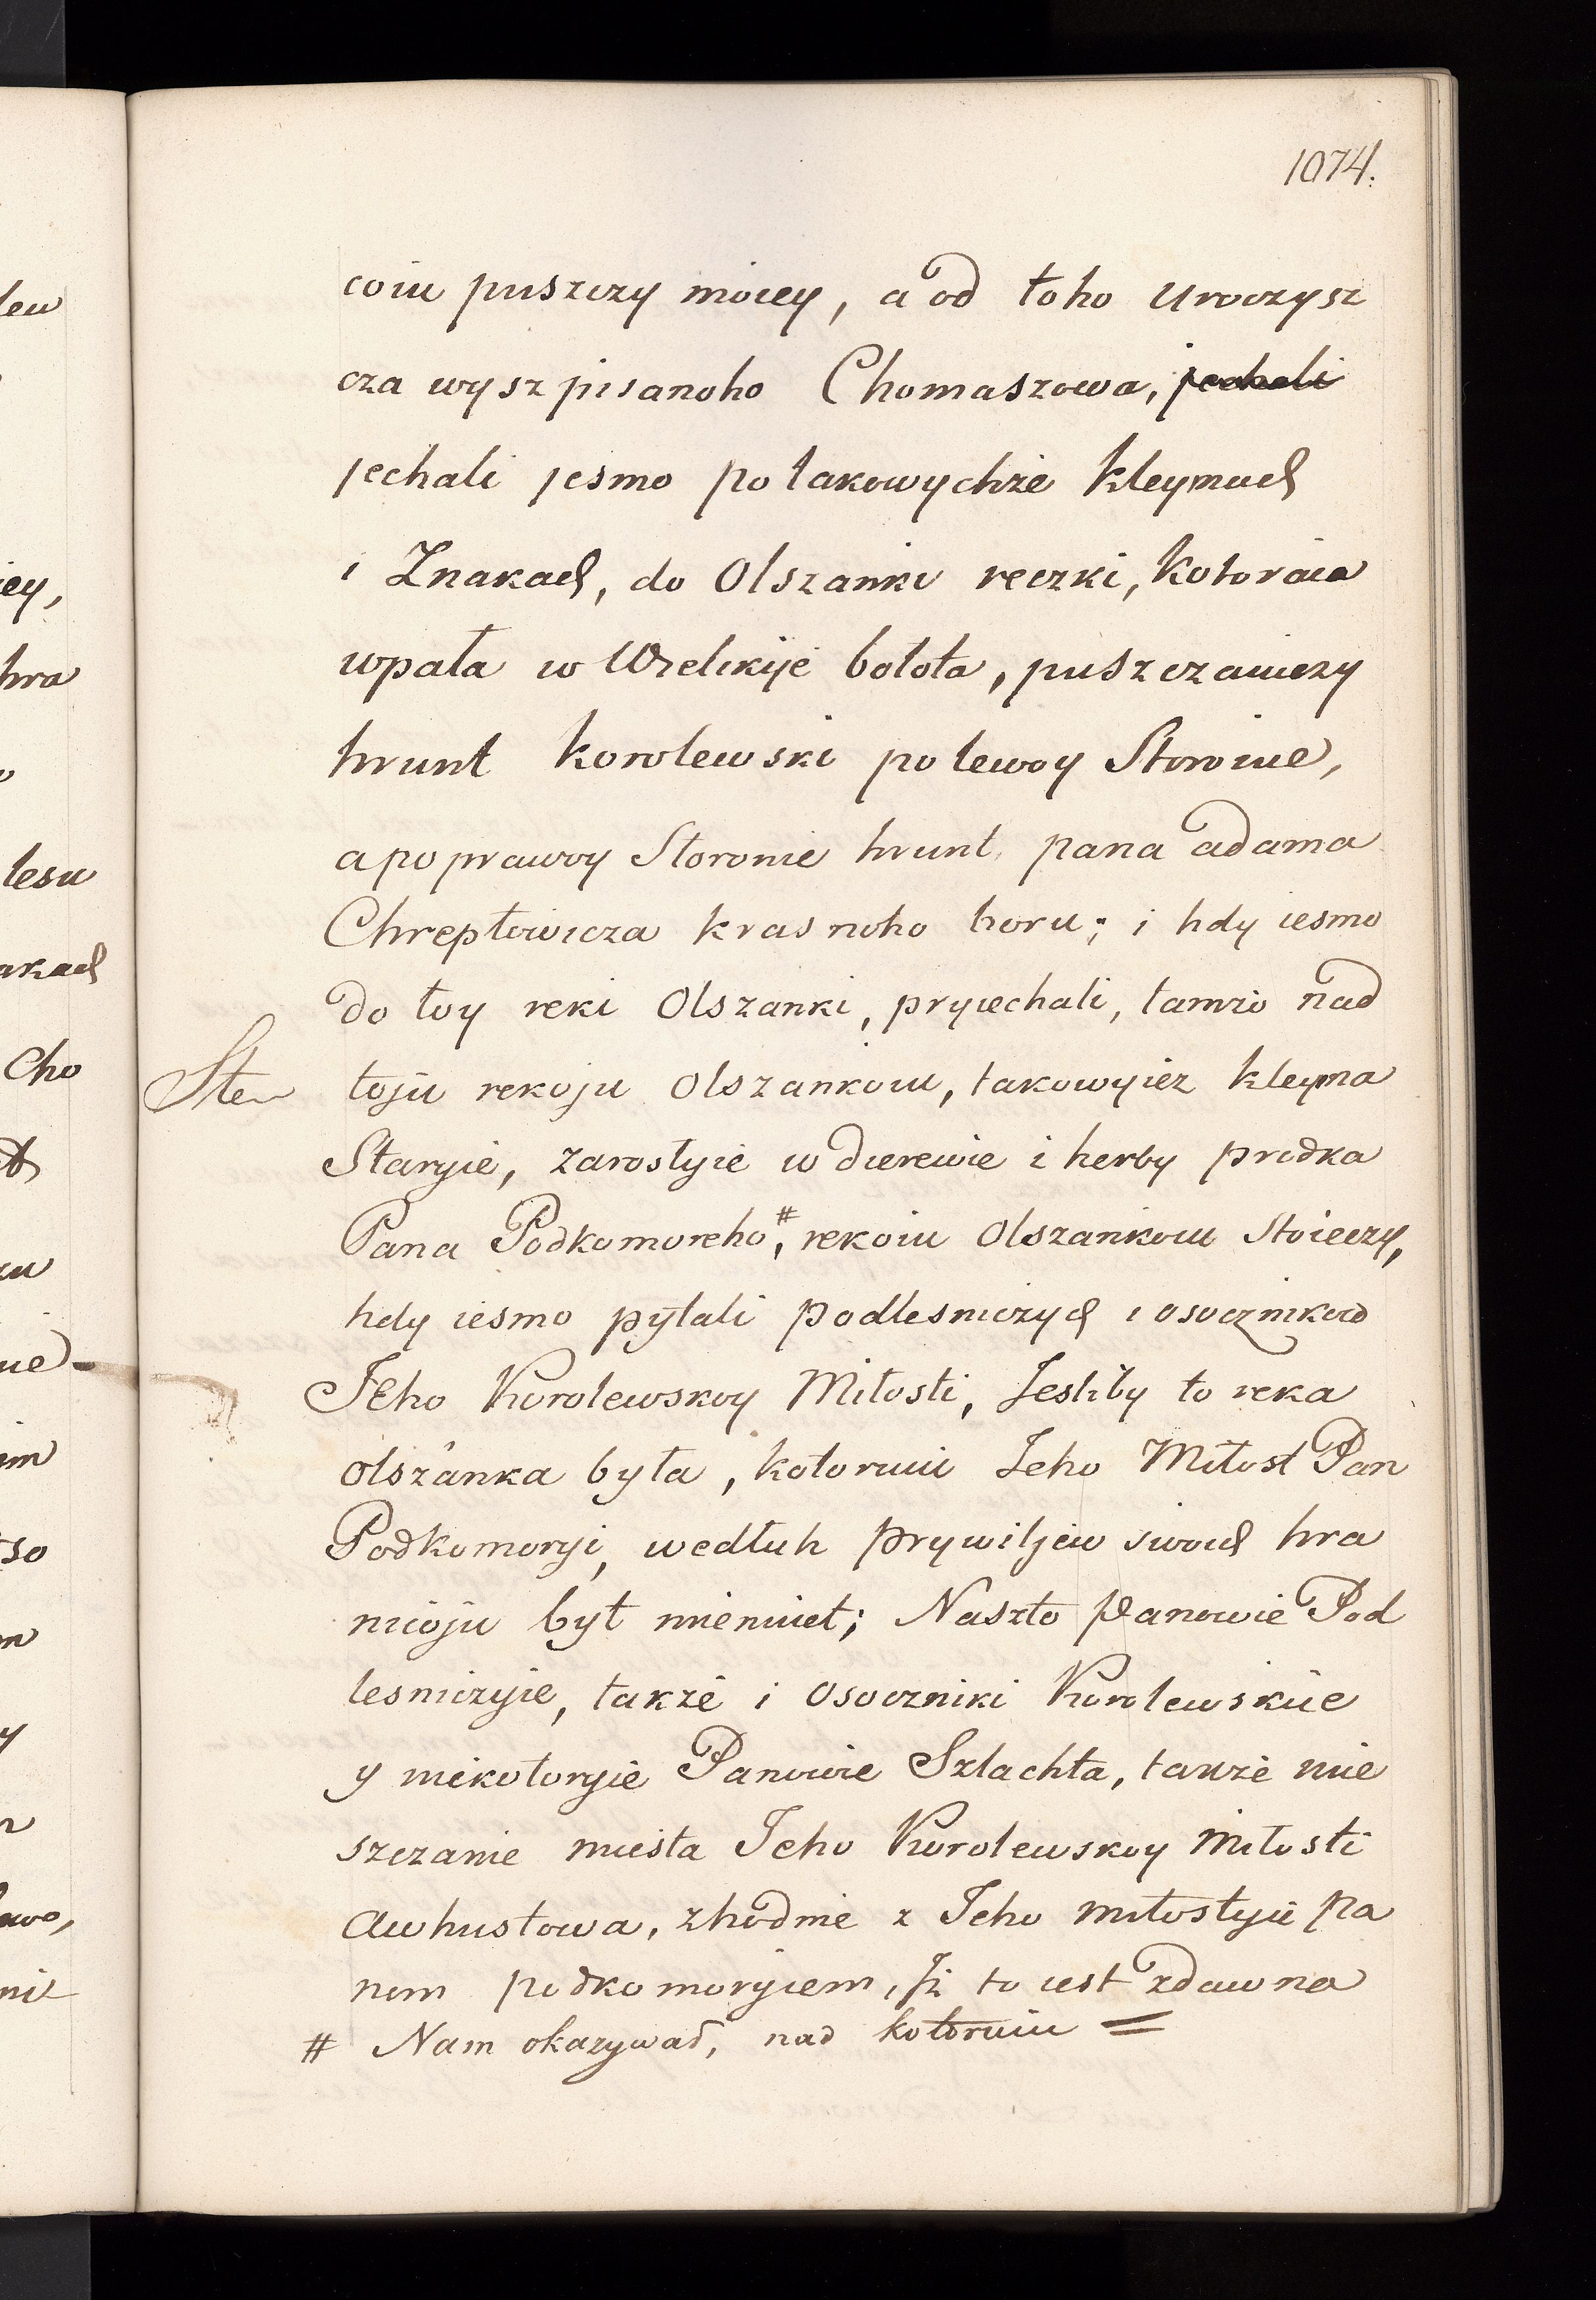 1074.
coiu puszczy moiey, a od toho Uroczysz
cza wysz pisanoho Chomaszowa, jechali
jechali jesmo po takowychże kleymach
i Znakach, do Olszanki reczki, kotoraia
wpała w Welikije bołota, puszczaiuczy
hrunt korolewski po lewoy Storonie,
a po prawoy Storonie hrunt pana adama
Chreptowicza krasnoho boru; i hdy iesmo
do toy reki Olszanki, pryiechali, tamżo nad
toju rekoju Olszankoiu, takowyież kleyma
Staryie, zarosłyie w derewie i herby predka
Pana Podkomoreho,# rekoiu Olszankoiu Stoieczy,
hdy iesmo pytali podlesniczych i osocznikow
Jeho Korolewskoy Miłosti, Jesliby to reka
olszanka była, kotoruiu Jeho Miłost Pan
Podkomoryi, wedłuh prywiljew swoich hra
nicoju był mieniuet; Naszto panowie Pod
lesniczyie, także i Osoczniki Korolewskiie
y niekotoryie Panowie Szlachta, także mie
szczanie miesta Jeho Korolewskoy miłosti
Awhustowa, zhodnie z Jeho miłostyiu pa
nom podkomoryiem, Jż to iest zdawna
# Nam okazywał, nad kotoruiu =
len
iey,
hra
lesu
akach
Cho
im